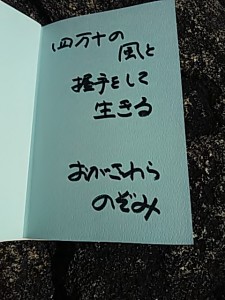 四万十の
風と
握手をして
生きる
おがさわら
のぞみ